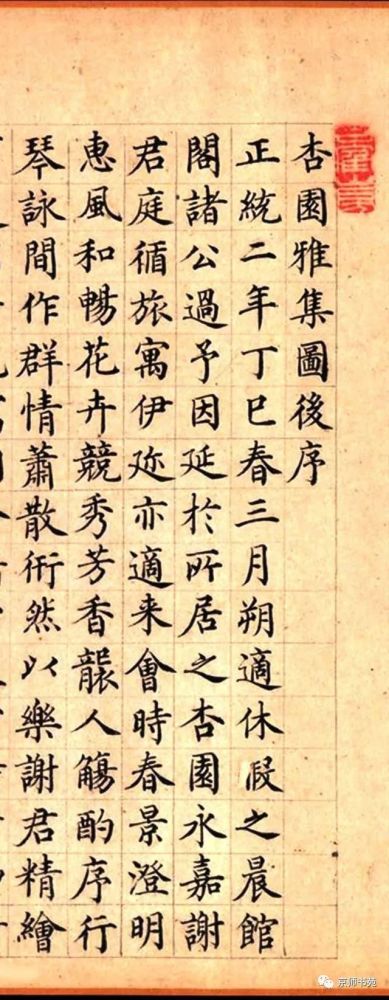 杏園雅集圖後序
正統二年丁巳春三月朔適休假之晨館
閣諸公過予因延於所居之杏園永嘉謝
君庭循旅寓伊迩亦適来會時春景澄明
惠風和暢花卉競秀芳香襲人觴酌序行
琴詠間作群情蕭散衎然以樂謝君精繪
京师书苑